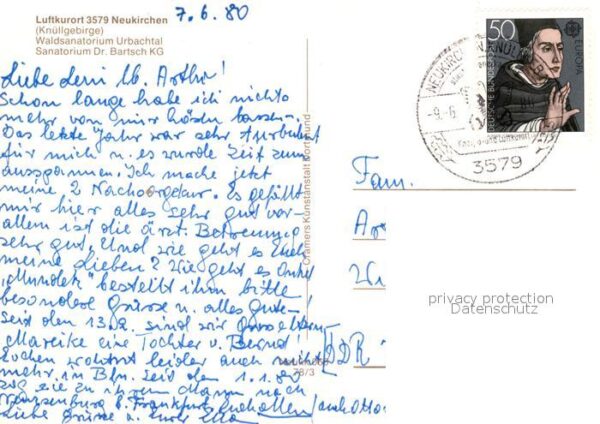 7.6.80
Luftkurort 3579 Neukirchen
(Knüllgebirge)
Waldsanatorium Urbachtal
Sanatorium Dr. Bartsch KG
Liebe Leni lb. Arthur!
Schon lange habe ich nichts
mehr von mir hören lassen.
Das letzte Jahr war sehr turbulent
für mich u. es wurde Zeit zum
ausspannen. Ich mache jetzt
meine 2. Nachsorgekur. Es gefällt
mir hier alles sehr gut vor
allem ist die ärzt. Betreuung
sehr gut. Und wie geht es Euch
meine Lieben? Wie geht es Onkel
bestellt ihm bitte
besondere Grüsse u. alles gute!
Seit den 13.2. sind wir Grosseltern
Mareike eine Tochter v. Bernd
wohnt leider auch nicht
mehr in Bln. Seit den 1.1.80
zog sie zu ihrem Mann nach
b. Frankfurt. Euch allen / auch Otto
Liebe Grüsse a. Euch
Cramers Kunstanstalt Dortmund
78/3
50
EUROPA
DEUTSCHE BUNDESPOST
NEUKIRCHEN, KNÜLL
-9.-6.
3579
Fam.
Ar
DDR
privacy protection
Datenschutz